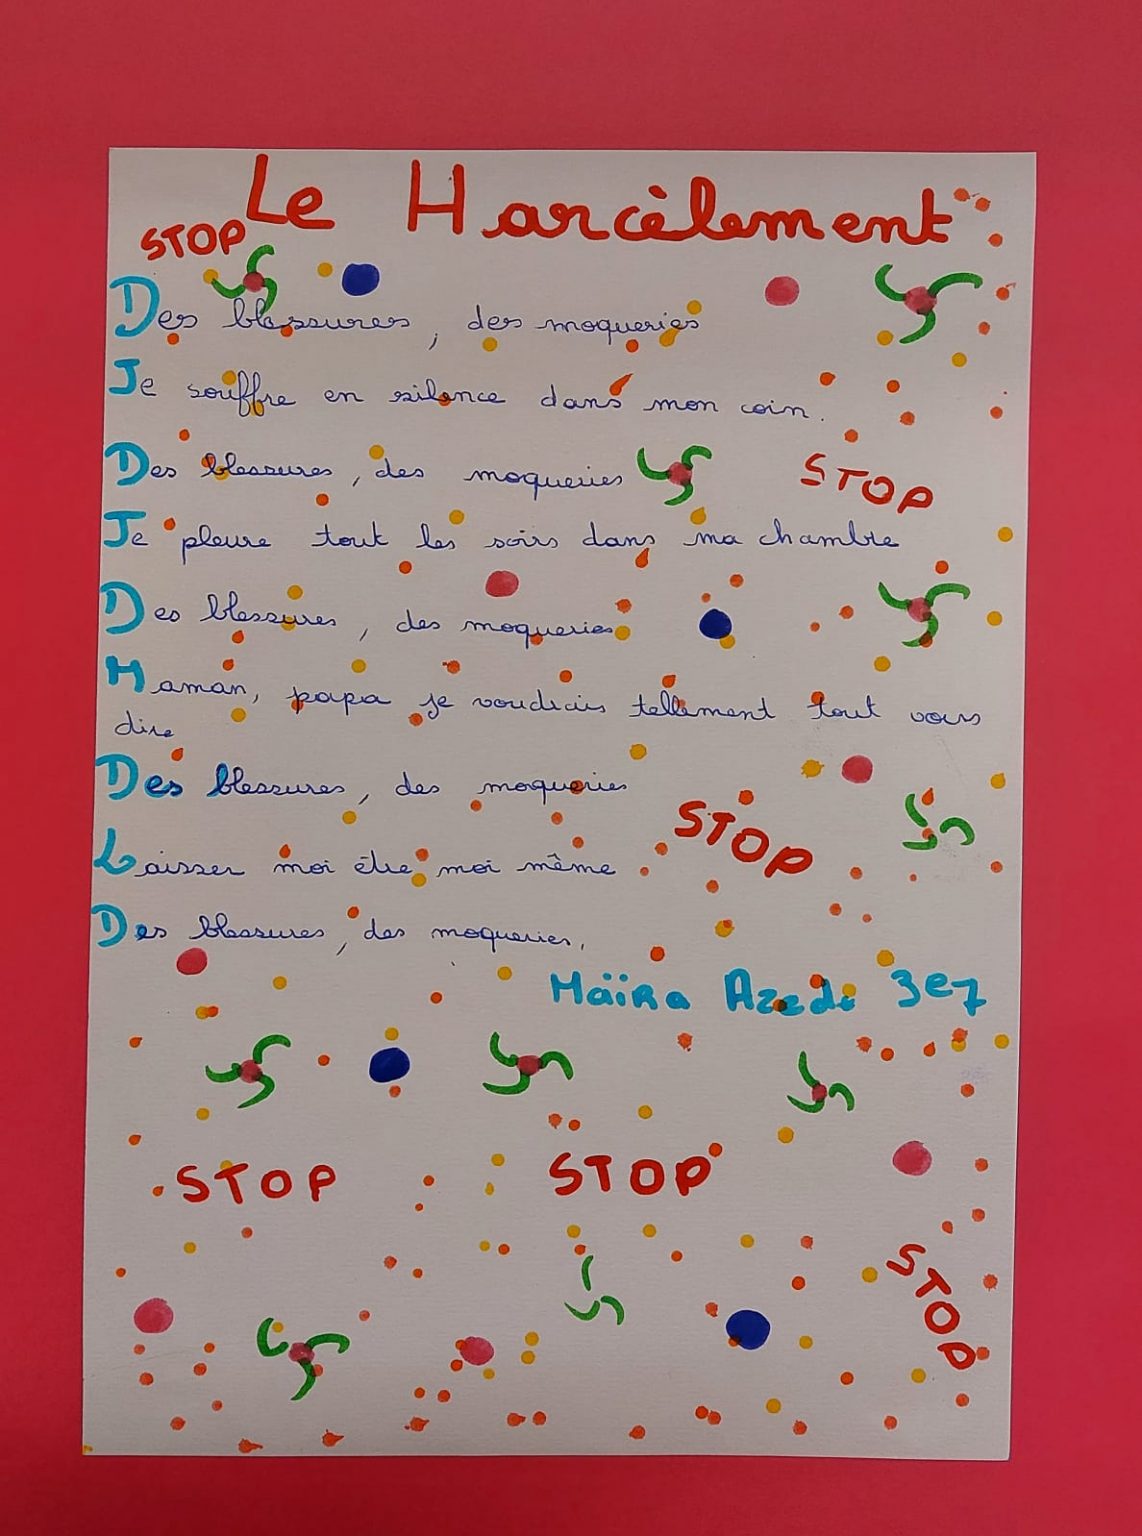 Le Harcèlement
STOP
Des blessures, des moqueries
Je souffre en silence dans mon coin.
Des blessures, des moqueries
STOP
Je pleure tout les soirs dans ma chambre
Des blessures, des moqueries
Maman, papa je voudrais tellement tout vous
dire
Des blessures, des moqueries
STOP
Laisser moi être moi même
Des blessures, des moqueries.
Maïra Azedo 3e7
STOP
STOP
STOP